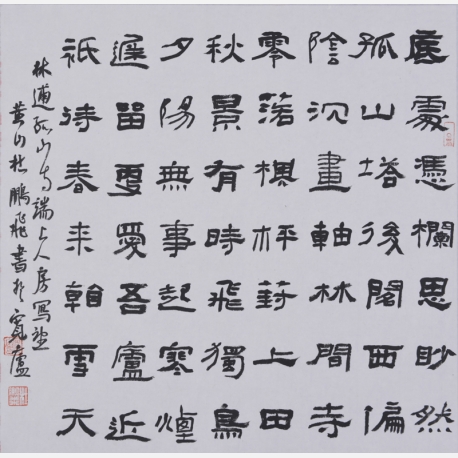 底處憑欄思眇然
孤山塔後閣西偏
陰沉畫軸林間寺
零落棋枰葑上田
秋景有時飛獨鳥
夕陽無事起寒煙
遲留更愛吾廬近
祇待春來看雪天
林逋孤山寺端上人房寫望
黃山杜鵬飛書於寬廬